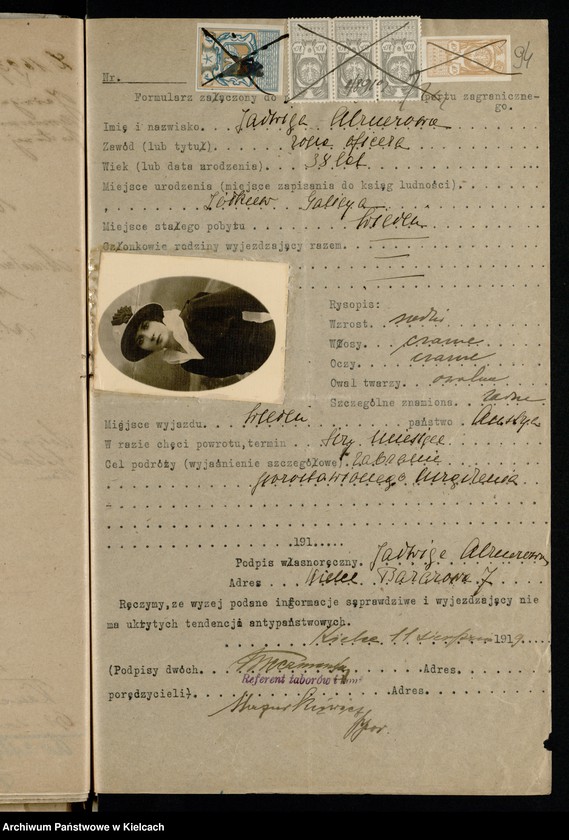 94
Nr.
Formularz załączony do portu zagraniczne-
go.
Imię i nazwisko. Jadwiga
Zawód (lub tytuł). żona oficera
Wiek (lub data urodzenia). 38 lat
Miejsce urodzenia (miejsce zapisania do ksiąg ludności).
Żółkiew Galicya
Miejsce stałego pobytu Wiedeń
Członkowie rodziny wyjeżdzający razem.
Rysopis:
Wzrost. średni
Włosy. czarne
Oczy. czarne
Owal twarzy. owalna
Szczególne znamiona. żadne
Miejsce wyjazdu. Wiedeń państwo Austrya
W razie chęci powrotu, termin trzy miesiące
Cel podróży (wyjaśnienie szczegółowe) zabranie
pozostawionego
191
Podpis własnoręczny. Jadwiga
Adres Kielce 7
Ręczymy,ze wyzej podane informacje są prawdziwe i wyjeżdzający nie
ma ukrytych tendencji antypaństwowych.
Kielce 11 1919
(Podpisy dwóch. Adres.
Referent taborów i koni
poręczycieli). Adres.
Archiwum Państwowe w Kielcach